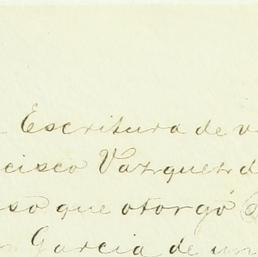 Escritura de v
cisco Vazquez d
so que otorgó
n Garcia de un